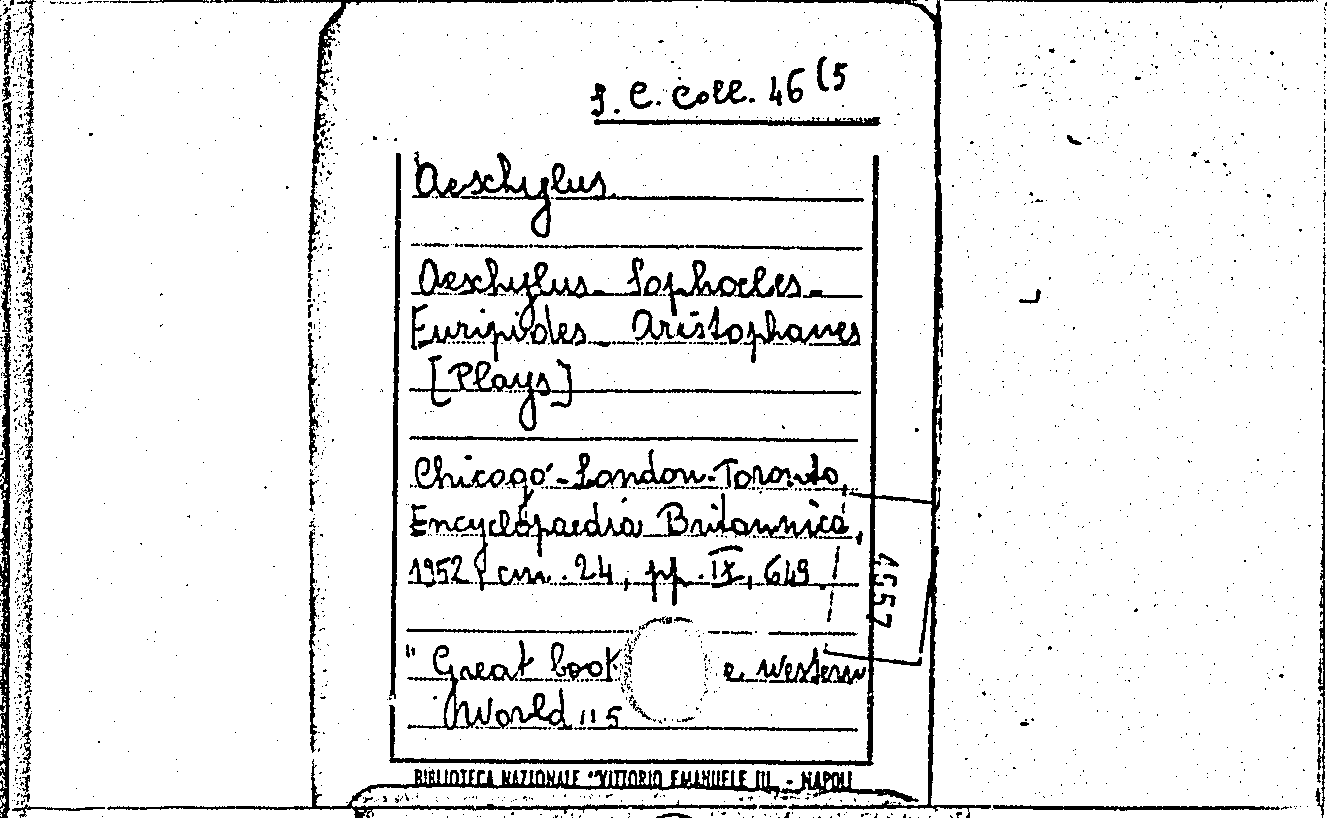 S. C. Coll. 46 (5
Aeschylus
Aeschylus - Sophocles -
Euripides - Aristophanes
[Plays]
Chicago - London - Toronto,
Encyclopaedia Britannica,
1952, cm. 24, pp. IX, 649.
"Great boo e western
World" 5
4557
BIBLIOTECA NAZIONALE "VITTORIO EMANUELE III" - NAPOLI